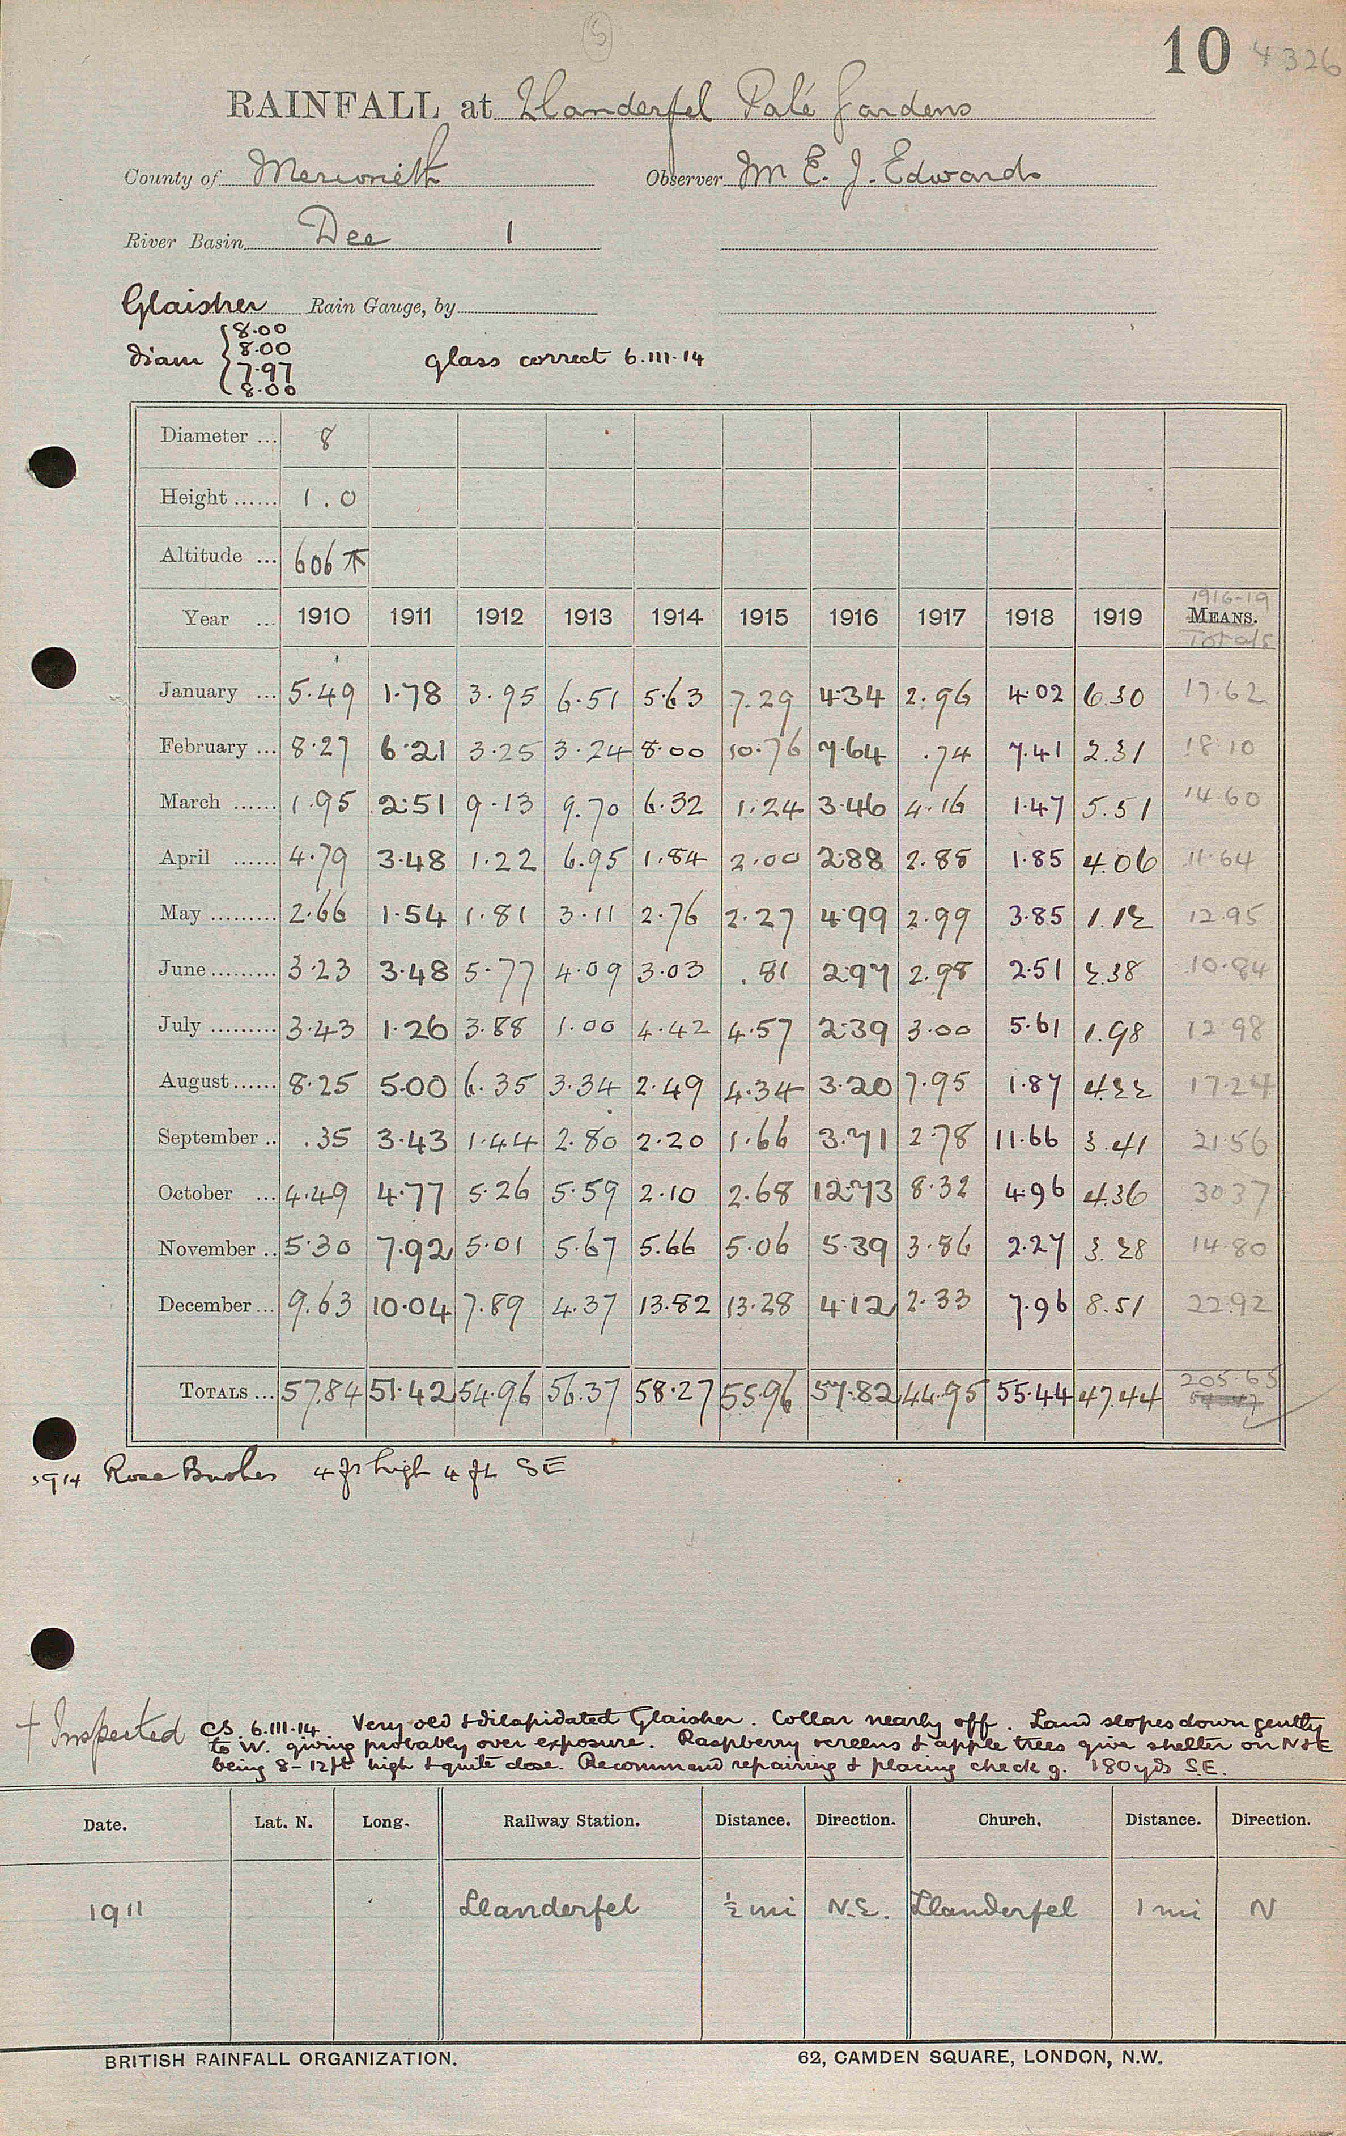 (5)
10 4326
RAINFALL at Llanderfel Palé Gardens
County of Merioneth Observer Mr E. J. Edwards
River Basin Dee 1
Glaisher Rain Gauge, by
diam { 8.00 8.00 7.97 8.00 glass correct 6.III.14
Diameter ... 8
Height ...... 1.0
Altitude ... 606
1916-19
Year ... 1910 1911 1912 1913 1914 1915 1916 1917 1918 1919 MEANS.
Totals
January ... 5.49 1.78 3.95 6.51 5.63 7.29 4.34 2.96 4.02 6.30 17.62
February ... 8.27 6.21 3.25 3.24 8.00 10.76 7.64 .74 7.41 2.31 18.10
March ...... 1.95 2.51 9.13 9.70 6.32 1.24 3.46 4.16 1.47 5.51 14.60
April ...... 4.79 3.48 1.22 6.95 1.84 2.00 2.88 2.85 1.85 4.06 11.64
May ......... 2.66 1.54 1.81 3.11 2.76 2.27 4.99 2.99 3.85 1.12 12.95
June ......... 3.23 3.48 5.77 4.09 3.03 .81 2.97 2.98 2.51 2.38 10.84
July ......... 3.43 1.26 3.88 1.00 4.42 4.57 2.39 3.00 5.61 1.98 12.98
August ...... 8.25 5.00 6.35 3.34 2.49 4.34 3.20 7.95 1.87 4.22 17.24
September .. .35 3.43 1.44 2.80 2.20 1.66 3.71 2.78 11.66 3.41 21.56
October ... 4.49 4.77 5.26 5.59 2.10 2.68 12.73 8.32 4.96 4.36 30.37
November .. 5.30 7.92 5.01 5.67 5.66 5.06 5.39 3.86 2.27 3.28 14.80
December ... 9.63 10.04 7.89 4.37 13.82 13.28 4.12 2.33 7.96 8.51 22.92
TOTALS ... 57.84 51.42 54.96 56.37 58.27 55.96 57.82 44.95 55.44 47.44 205.65
1914 Rose Bushes 4 ft high 4 ft SE
† Inspected CS. 6.III.14 Very old & dilapidated Glaisher. Collar nearly off. Land slopes down gently
to W. giving probably over exposure. Raspberry screens & apple trees give shelter on N & E
being 8-12 ft high & quite close. Recommend repairing & placing check g. 180 yds S.E.
Date. Lat. N. Long. Railway Station. Distance. Direction. Church. Distance. Direction.
1911 Llanderfel ½ mi N.E. Llanderfel 1 mi N
BRITISH RAINFALL ORGANIZATION. 62, CAMDEN SQUARE, LONDON, N.W.